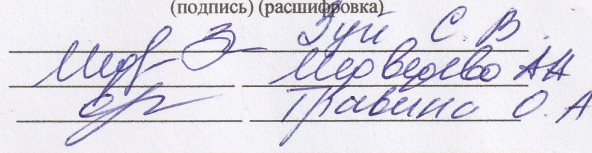 (подпись) (расшифровка)
Зуй С. В.
Медведева АН
Травина О. А